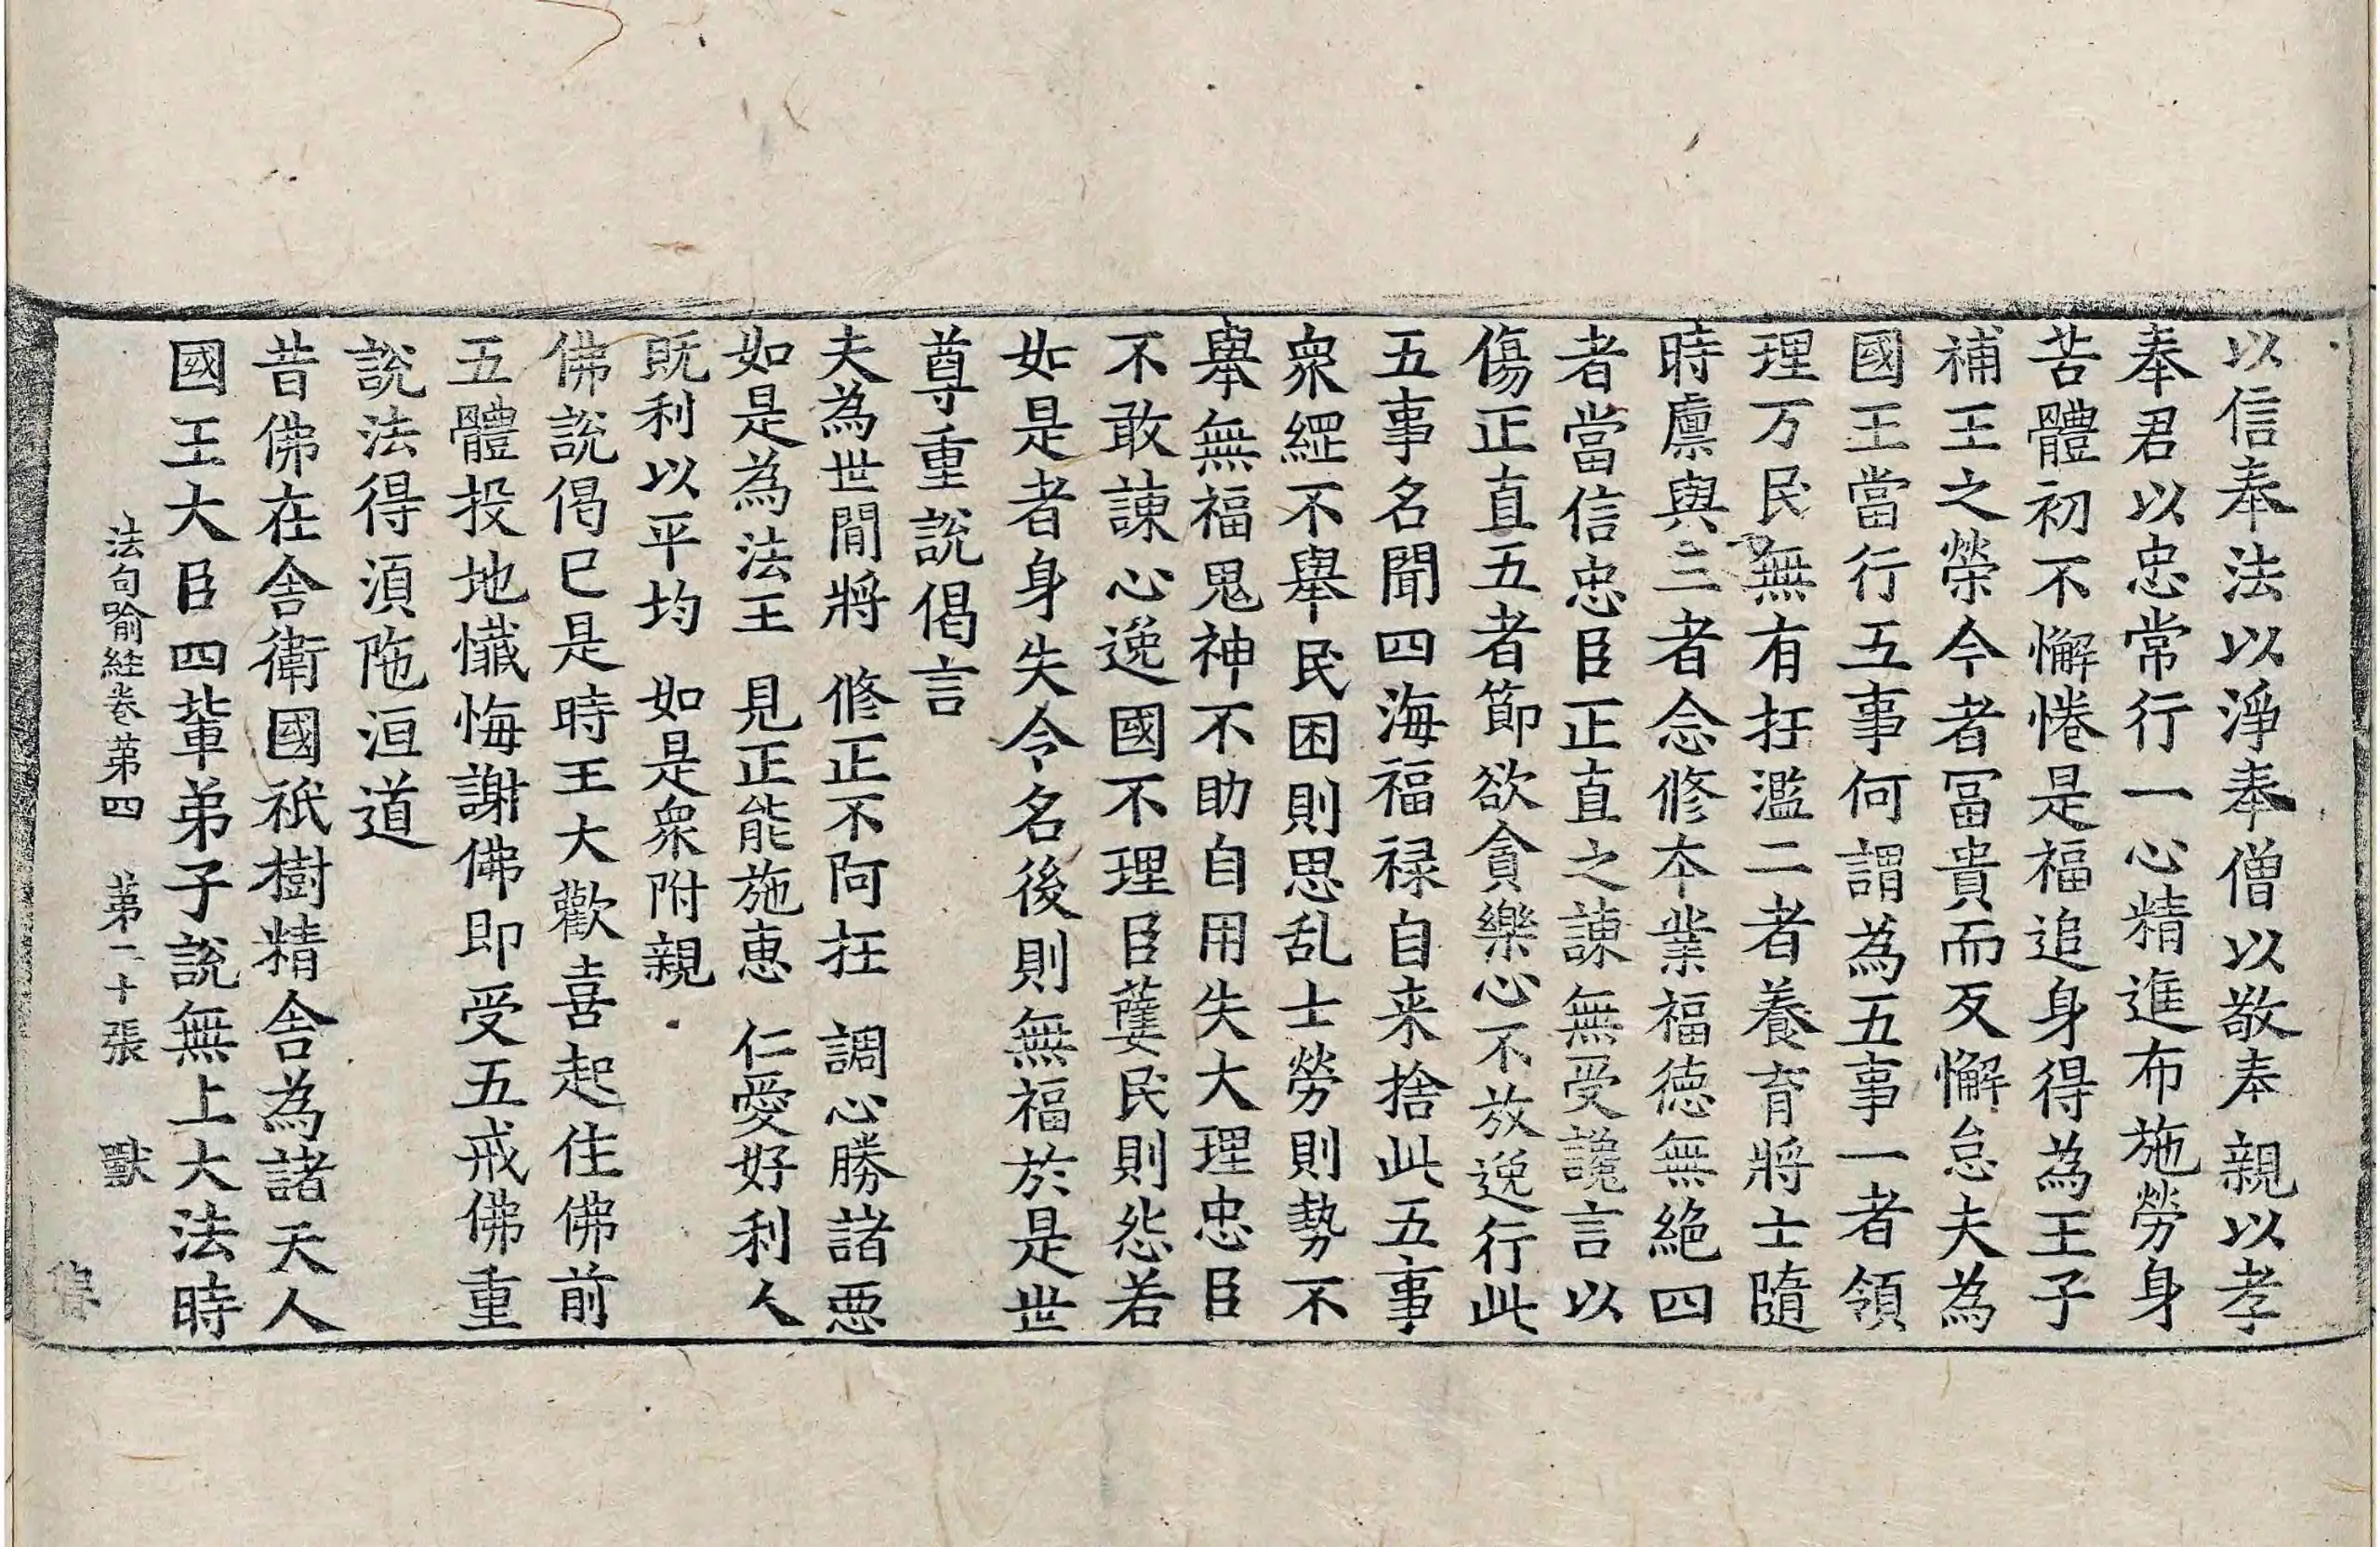 以信奉法以淨奉僧以敬奉親以孝
奉君以忠常行一心精進布施勞身
苦體初不懈惓是福追身得為王子
補王之榮今者冨貴而反懈怠夫為
國王當行五事何謂為五事一者領
理万民無有抂濫二者養育將士隨
時廪與三者念修本業福徳無絶四
者當信忠臣正直之諫無受讒言以
傷正直五者節欲貪樂心不放逸行此
五事名聞四海福禄自来捨此五事
衆綱不舉民困則思乱士勞則勢不
舉無福鬼神不助自用失大理忠臣
不敢諫心逸國不理臣㜸民則怨若
如是者身失令名後則無福於是世
尊重說偈言
夫為世間將　修正不阿抂　調心勝諸惡
如是為法王　見正能施惠　仁愛好利人
既利以平均　如是衆附親
佛說偈已是時王大歡喜起住佛前
五體投地懺悔謝佛即受五戒佛重
說法得湏陁洹道
昔佛在舎衛國祇樹精舎為諸天人
國王大臣四輩弟子說無上大法時
法句喻経卷苐四　苐二十張　獸